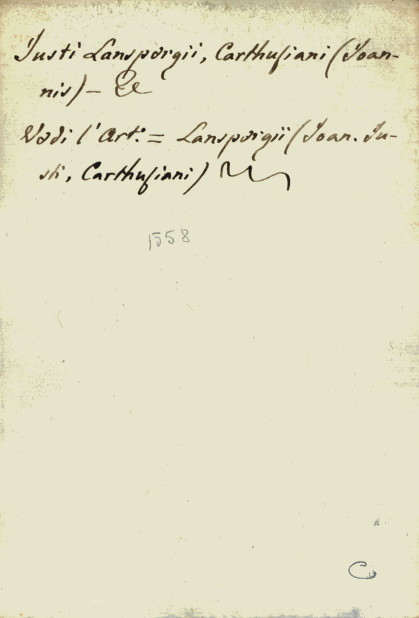 Justi Lanspergii, Carthusiani (Joan-
nis) — &
Vedi l'Art.° = Lanspergii (Joan. Ju-
sti, Carthusiani)
1558
C